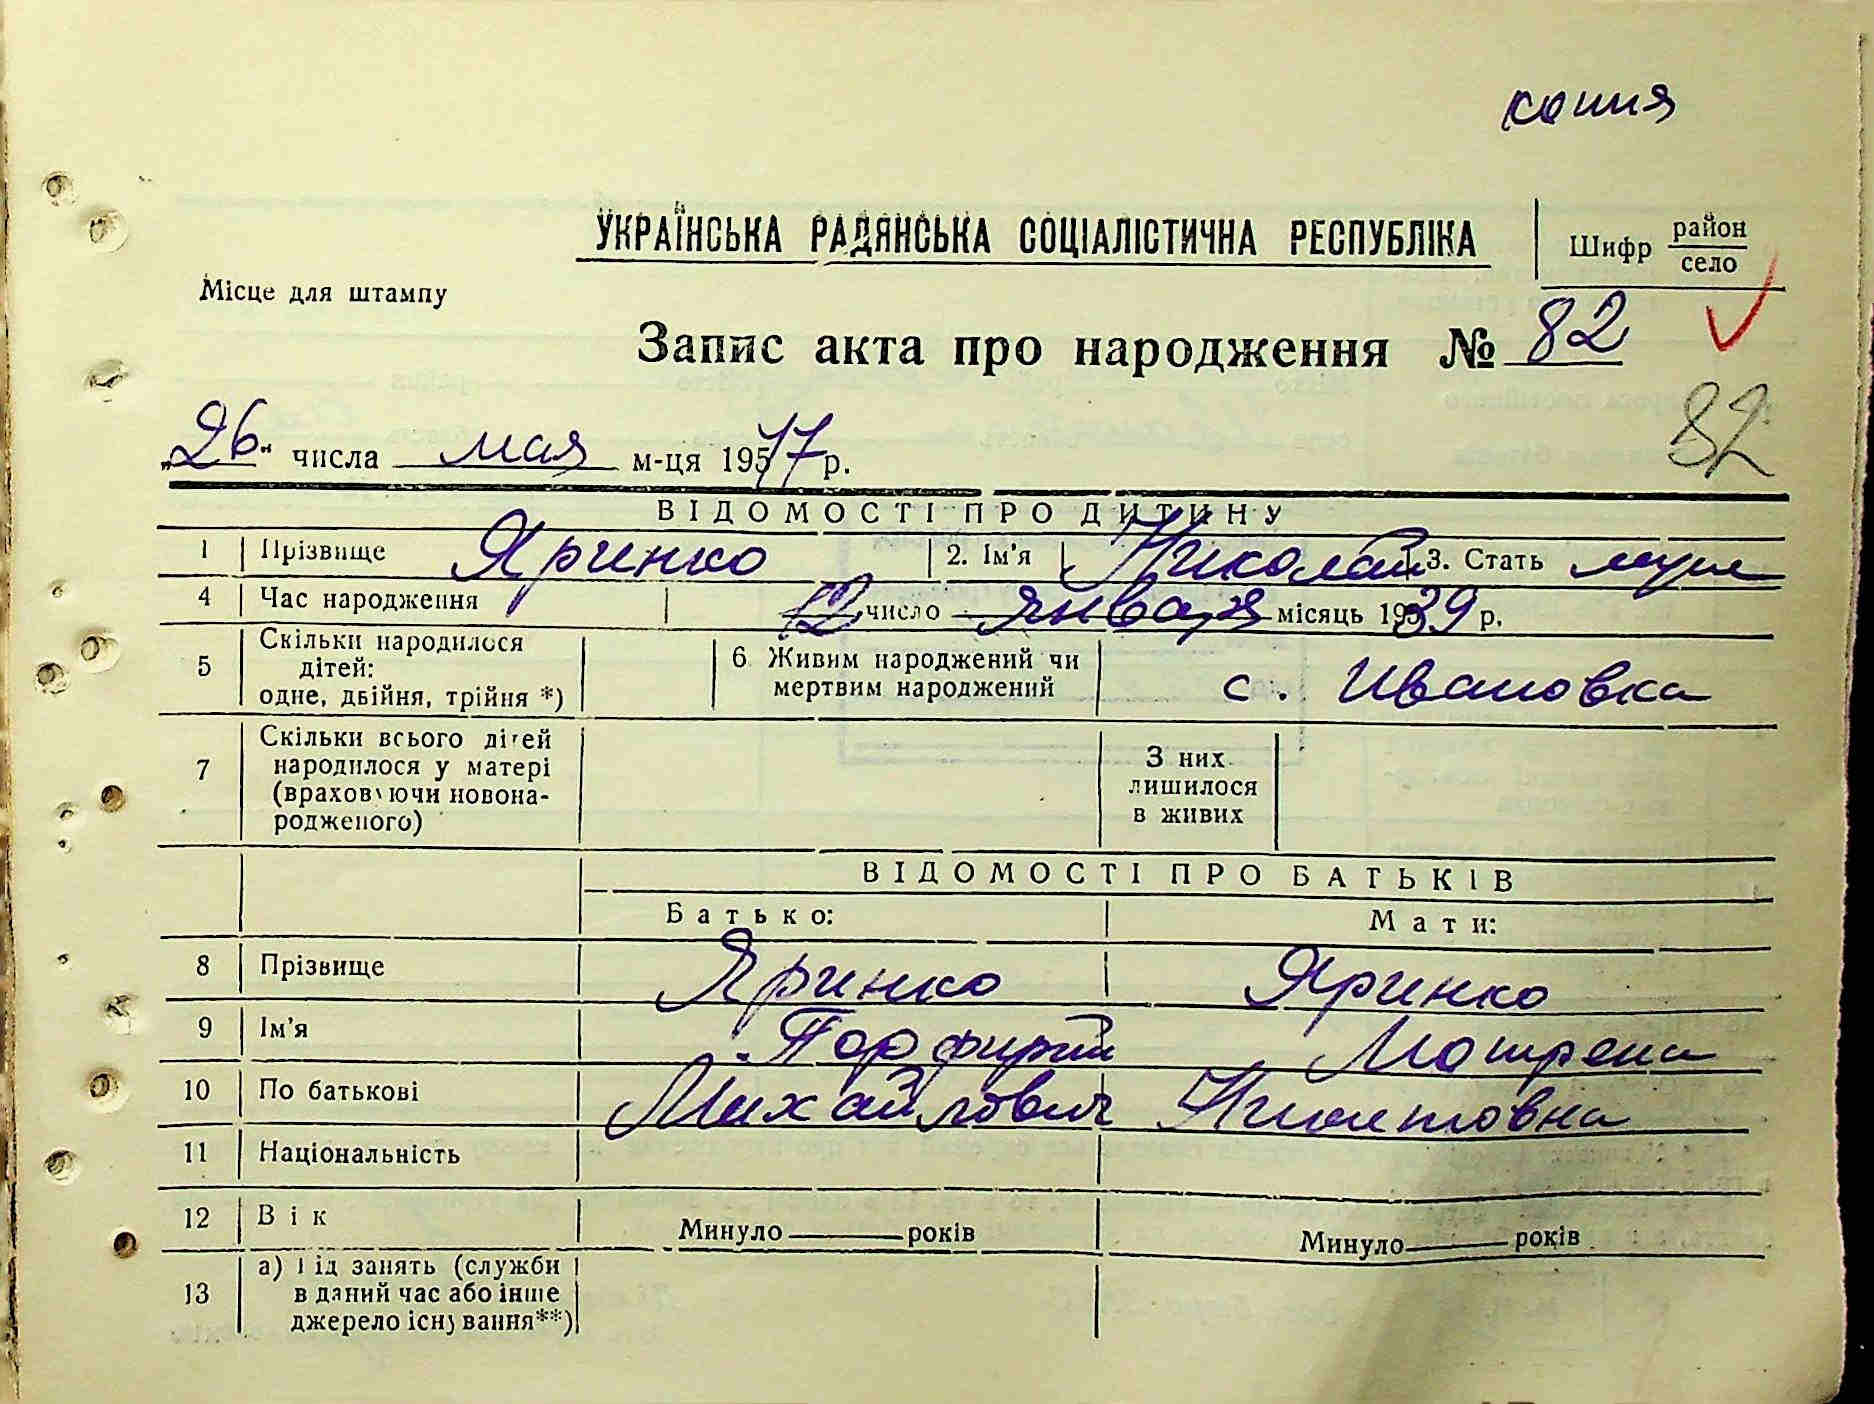 копия
УКРАЇНСЬКА РАДЯНСЬКА СОЦІАЛІСТИЧНА РЕСПУБЛІКА
Шифр район село
Місце для штампу
Запис акта про народження № 82
82
„26" числа мая м-ця 1957 р.
ВІДОМОСТІ ПРО ДИТИНУ
1 Прізвище Яринко 2. Ім'я Николай 3. Стать муж
4 Час народження 12 число января місяць 1939 р.
5 Скільки народилося дітей: одне, двійня, трійня *) 6 Живим народжений чи мертвим народжений с. Ивановка
7 Скільки всього дітей народилося у матері (враховуючи новонародженого) З них лишилося в живих
ВІДОМОСТІ ПРО БАТЬКІВ
Батько: Мати:
8 Прізвище Яринко Яринко
9 Ім'я Порфирий Мотрена
10 По батькові Михайлович Никитовна
11 Національність
12 Вік Минуло років Минуло років
13 а) Рід занять (служби в даний час або інше джерело існування**)